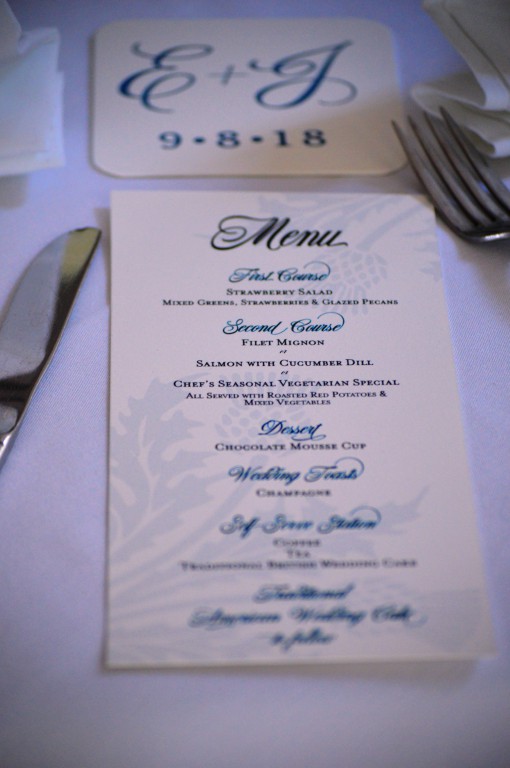 E + J
9•8•18
Menu
First Course
Strawberry Salad
Mixed Greens, Strawberries & Glazed Pecans
Second Course
Filet Mignon
or
Salmon with Cucumber Dill
or
Chef's Seasonal Vegetarian Special
All Served with Roasted Red Potatoes &
Mixed Vegetables
Dessert
Chocolate Mousse Cup
Wedding Toasts
Champagne
Self-Serve Station
Coffee
Tea
Traditional British Wedding Cake
Traditional
American Wedding Cake
to follow